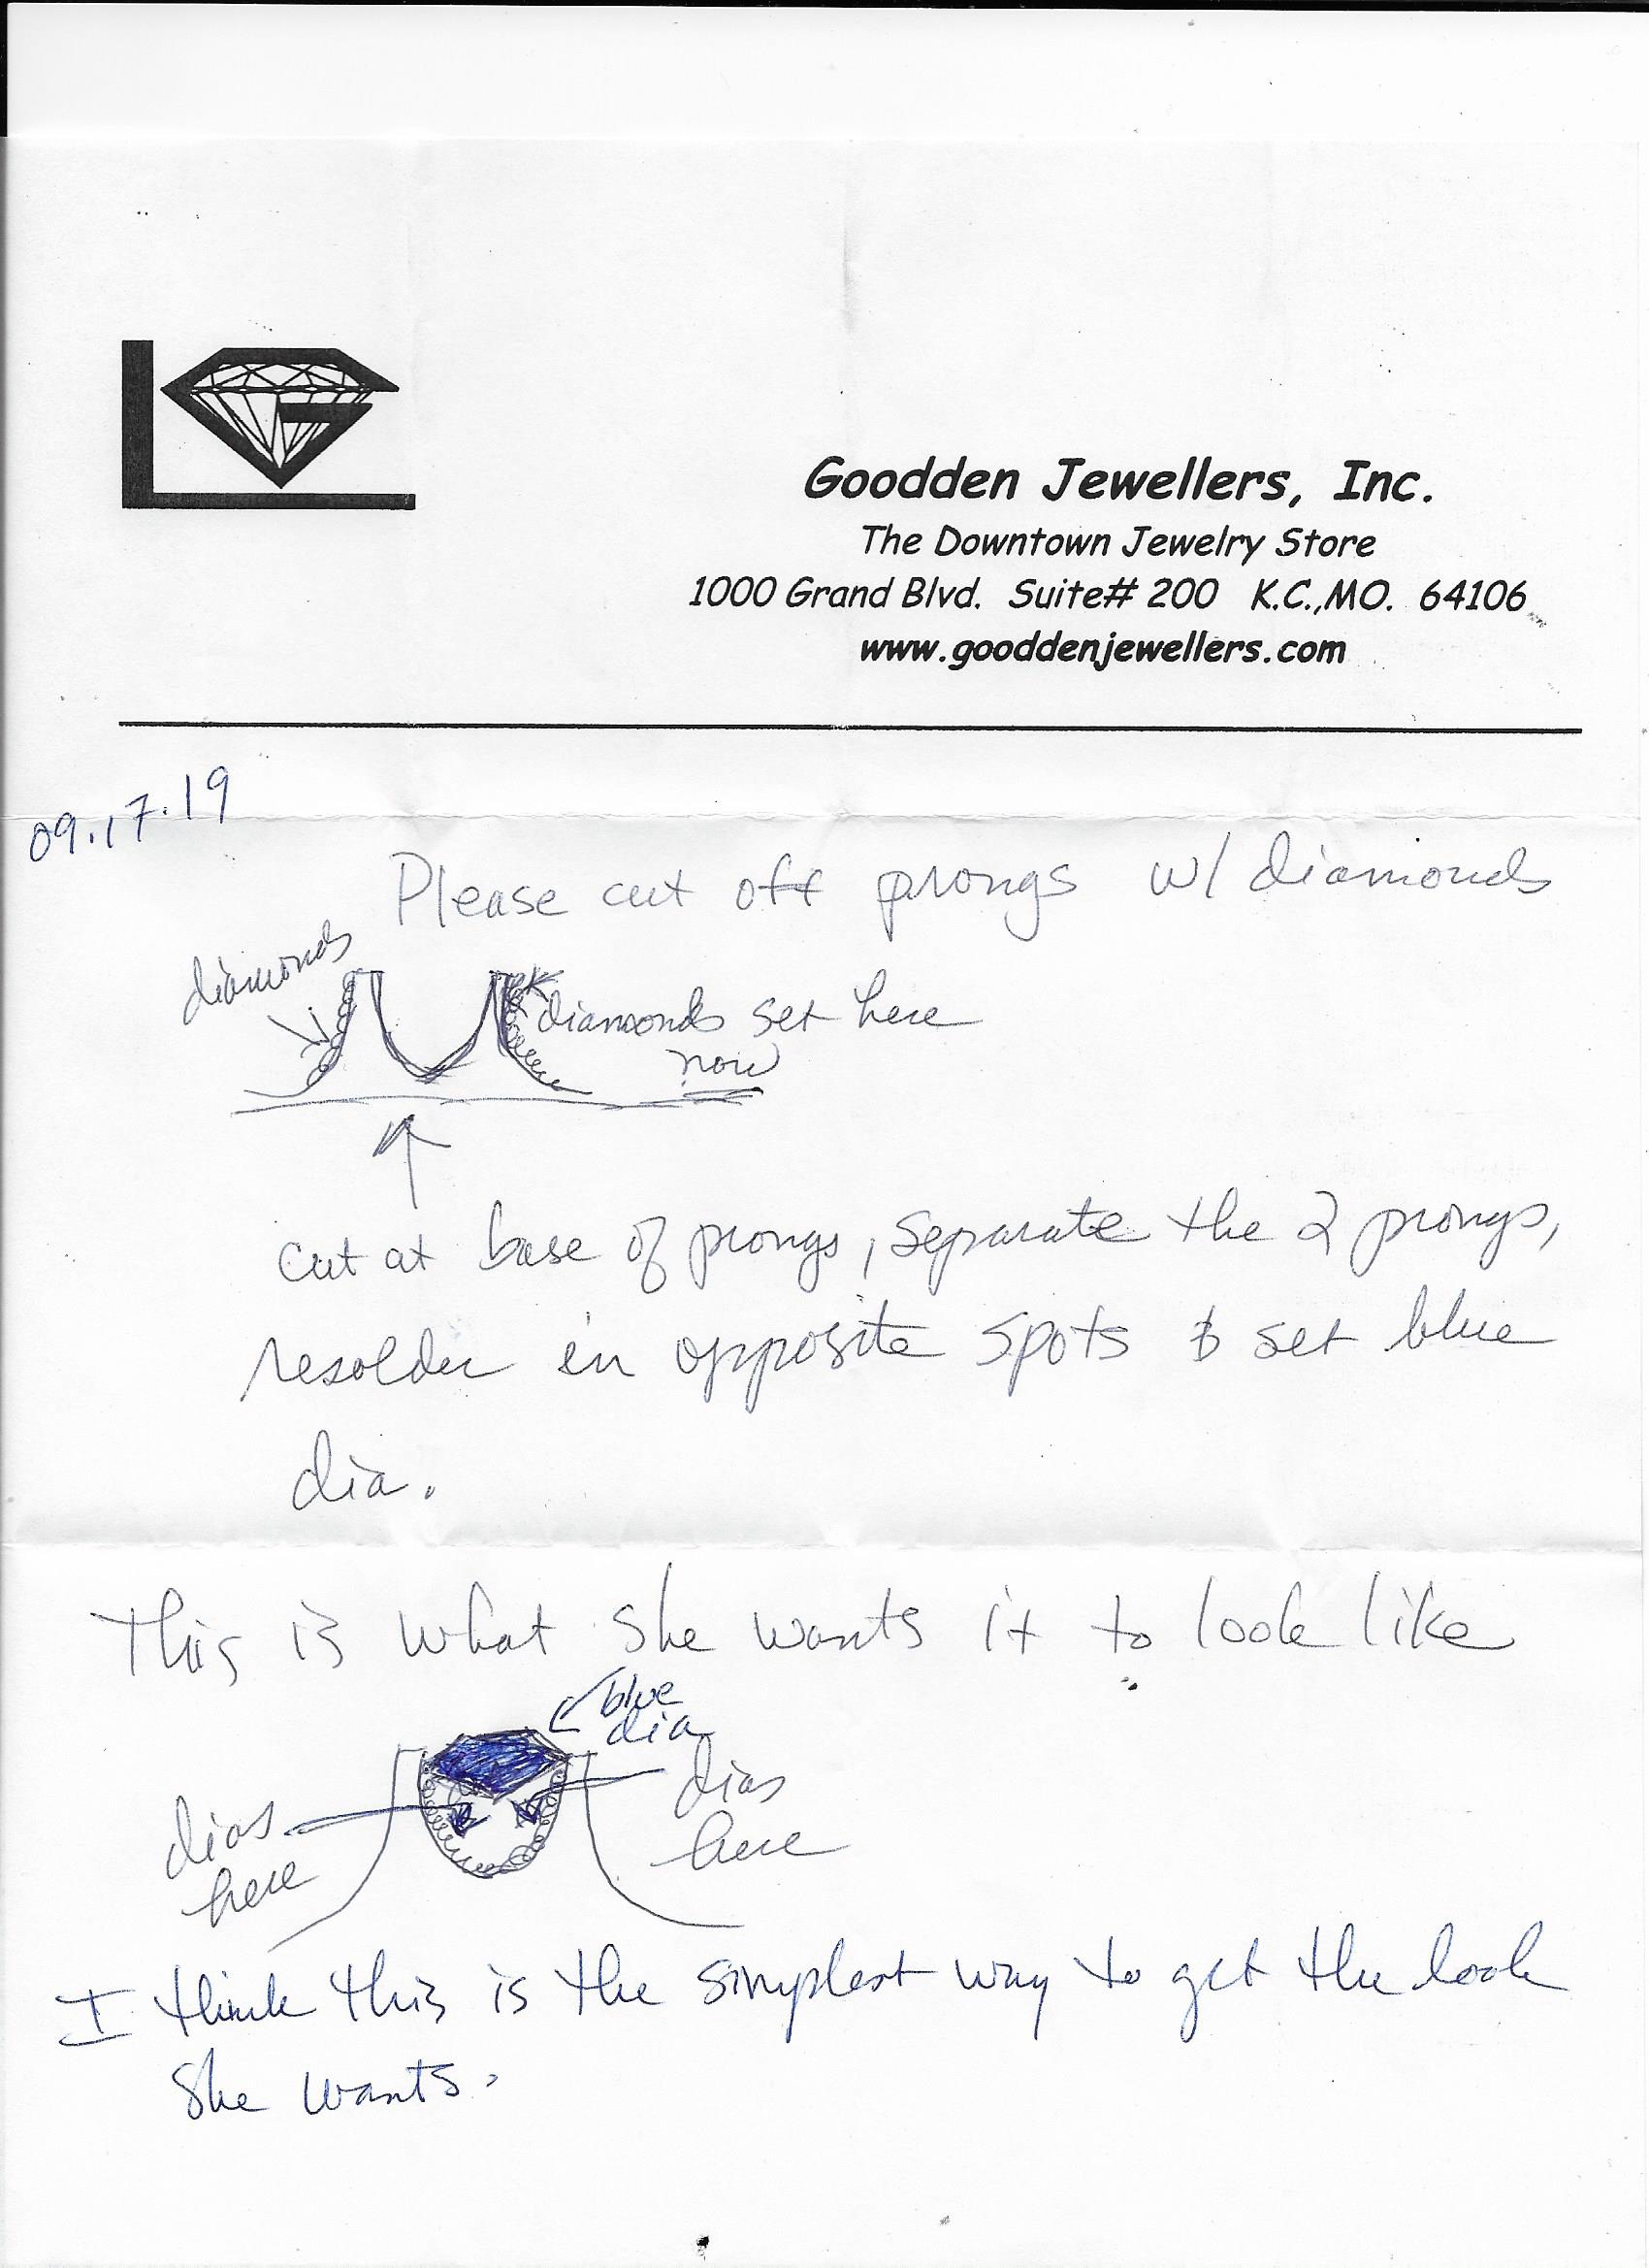 LG
Goodden Jewellers, Inc.
The Downtown Jewelry Store
1000 Grand Blvd. Suite# 200 K.C.,MO. 64106
www.gooddenjewellers.com
09.17.19
Please cut off prongs w/ diamonds
diamonds
diamonds set here
now
cut at base of prongs, separate the 2 prongs,
resolder in opposite spots & set blue
dia.
This is what she wants it to look like
blue
dia
dias
here
dias
here
I think this is the simplest way to get the look
she wants.